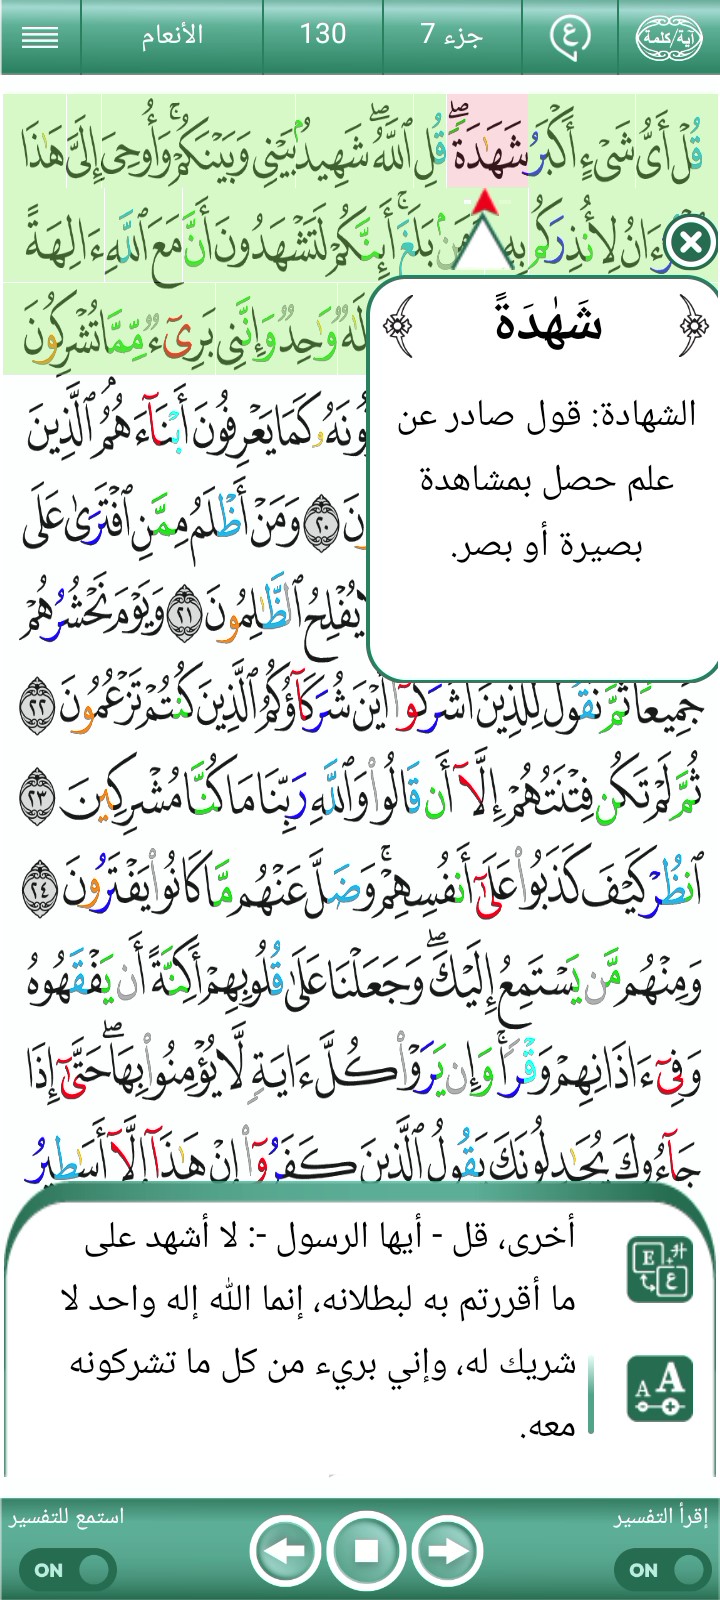 آية/كلمة
ع
جزء 7
130
الأنعام
قُلْ أَىُّ شَىْءٍ أَكْبَرُ شَهَـٰدَةً ۖ قُلِ ٱللَّهُ ۖ شَهِيدٌۢ بَيْنِى وَبَيْنَكُمْ ۚ وَأُوحِىَ إِلَىَّ هَـٰذَا
لِأُنذِرَكُم بِهِۦ وَمَنۢ بَلَغَ ۚ أَئِنَّكُمْ لَتَشْهَدُونَ أَنَّ مَعَ ٱللَّهِ ءَالِهَةً
إِلَـٰهٌ وَٰحِدٌ وَإِنَّنِى بَرِىٓءٌ مِّمَّا تُشْرِكُونَ
كَمَا يَعْرِفُونَ أَبْنَآءَهُمُ ٱلَّذِينَ
٢٠ وَمَنْ أَظْلَمُ مِمَّنِ ٱفْتَرَىٰ عَلَى
يُفْلِحُ ٱلظَّـٰلِمُونَ ٢١ وَيَوْمَ نَحْشُرُهُمْ
جَمِيعًا ثُمَّ نَقُولُ لِلَّذِينَ أَشْرَكُوٓا۟ أَيْنَ شُرَكَآؤُكُمُ ٱلَّذِينَ كُنتُمْ تَزْعُمُونَ ٢٢
ثُمَّ لَمْ تَكُن فِتْنَتُهُمْ إِلَّآ أَن قَالُوا۟ وَٱللَّهِ رَبِّنَا مَا كُنَّا مُشْرِكِينَ ٢٣
ٱنظُرْ كَيْفَ كَذَبُوا۟ عَلَىٰٓ أَنفُسِهِمْ ۚ وَضَلَّ عَنْهُم مَّا كَانُوا۟ يَفْتَرُونَ ٢٤
وَمِنْهُم مَّن يَسْتَمِعُ إِلَيْكَ ۖ وَجَعَلْنَا عَلَىٰ قُلُوبِهِمْ أَكِنَّةً أَن يَفْقَهُوهُ
وَفِىٓ ءَاذَانِهِمْ وَقْرًا ۚ وَإِن يَرَوْا۟ كُلَّ ءَايَةٍ لَّا يُؤْمِنُوا۟ بِهَا ۖ حَتَّىٰٓ إِذَا
جَآءُوكَ يُجَـٰدِلُونَكَ يَقُولُ ٱلَّذِينَ كَفَرُوٓا۟ إِنْ هَـٰذَآ إِلَّآ أَسَـٰطِيرُ
شَهَٰدَةً
الشهادة: قول صادر عن
علم حصل بمشاهدة
بصيرة أو بصر.
أخرى، قل - أيها الرسول -: لا أشهد على
ما أقررتم به لبطلانه، إنما الله إله واحد لا
شريك له، وإني بريء من كل ما تشركونه
معه.
E ع
A A
إقرأ التفسير
ON
استمع للتفسير
ON